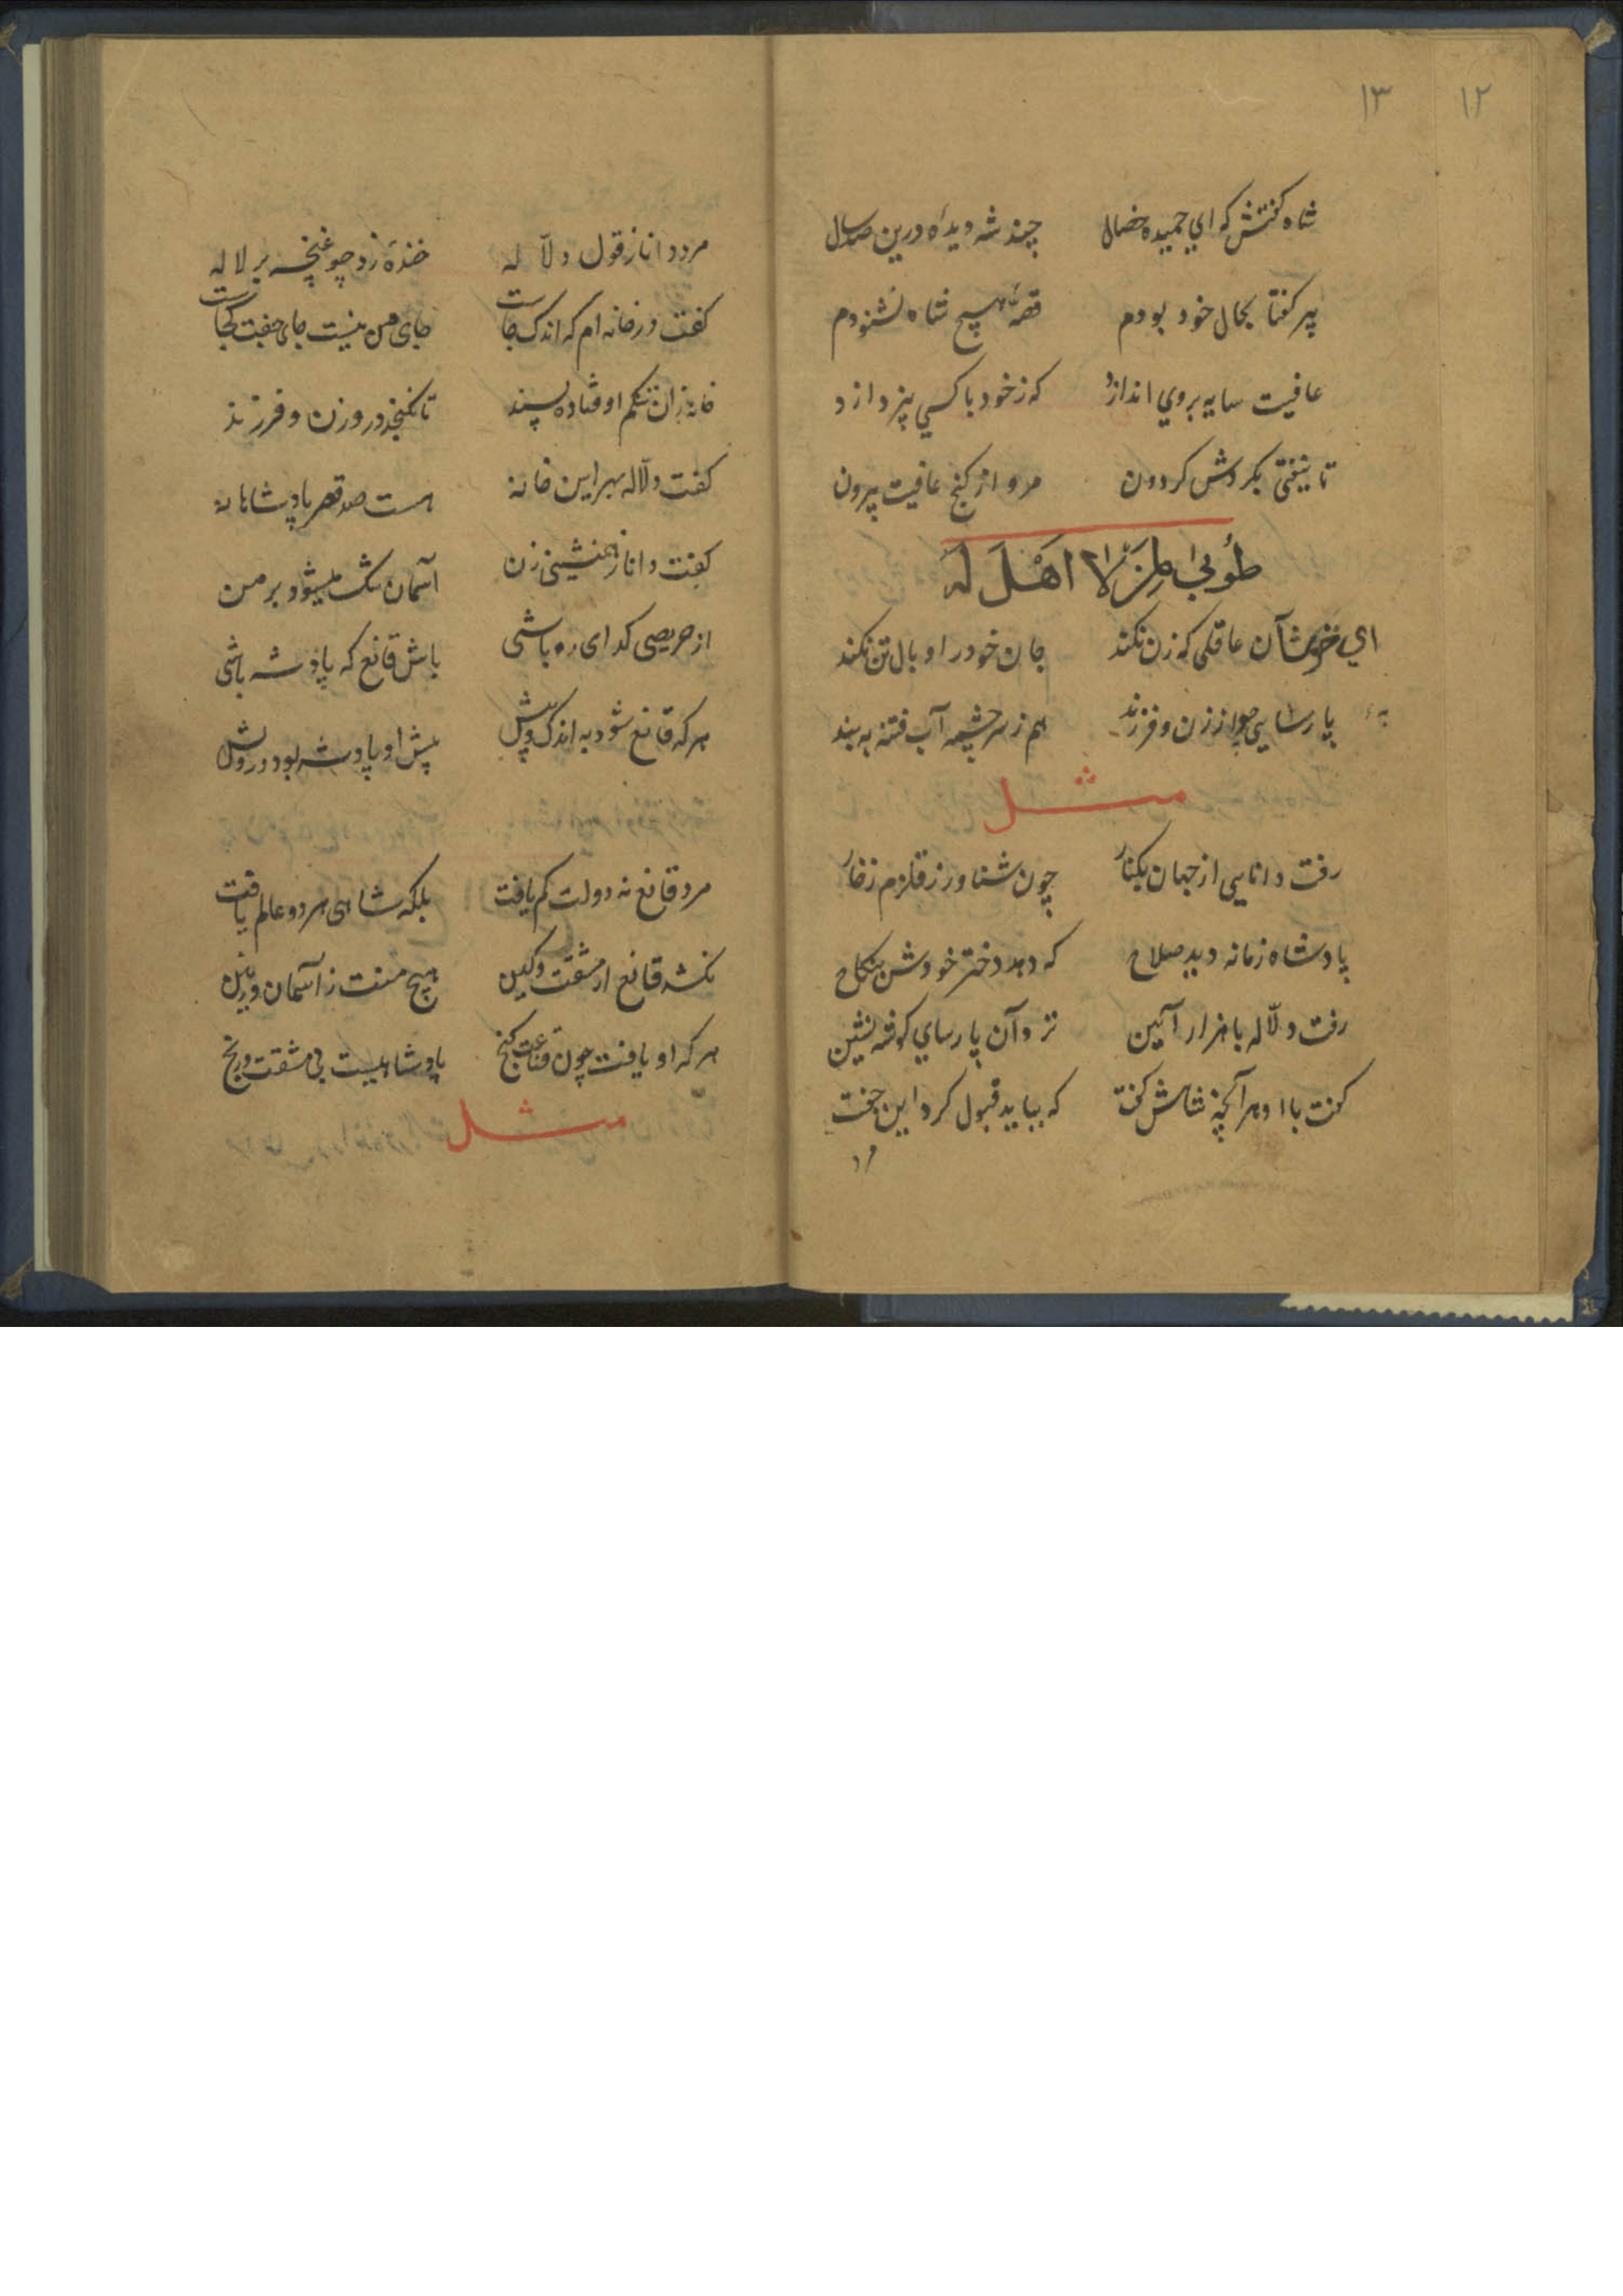 ۱۲
۱۳
شاه گفتش که ای حمیده خصال چند شه دیده درین صد سال
پیر گفتا بحال خود بودم قصهٔ هیچ شاه نشنودم
عافیت سایه بروی اندازد که ز خود با کسی نپردازد
تا نیفتی بگردش گردون مرو از کنج عافیت بیرون
طُوبیٰ لِمَنْ لا اَهْلَ لَهُ
ای خوشا آن عاقلی که زن نکند جان خود را وبال تن نکند
پارسایی مجو از زن و فرزند هم ز سرچشمه آب فتنه به بند
مثل
رفت دانایی از جهان بکنار چون شناور ز قلزم زخار
پادشاه زمانه دید صلاح که دهد دختر خودش بنکاح
رفت دلّاله با هزار آئین نزد آن پارسای گوشه نشین
گفت با او هر آنچه شاهش گفت که بباید قبول کرد این جفت
مرد
مرد دانا ز قول دلّاله خندهٔ زد چو غنچه بر لاله
گفت در خانه ام که اندک جاست جای من نیست جای جفت کجاست
خانه زان تنگم اوفتاده پسند تا نگنجد درو زن و فرزند
گفت دلّاله بهر این خانه هست صد قصر پادشاهانه
گفت دانا ز همنشینی زن آسمان تنگ میشود بر من
از حریصی گدای ره باشی باش قانع که پادشه باشی
هر که قانع شود به اندک و بیش پیش او پادشه بود درویش
مرد قانع نه دولت کم یافت بلکه شاهی هر دو عالم یافت
نکشد قانع از مشقت و کین هیچ منت ز آسمان و زمین
هر که او یافت چون قناعت گنج پادشاهیست بی مشقت و رنج
مثل